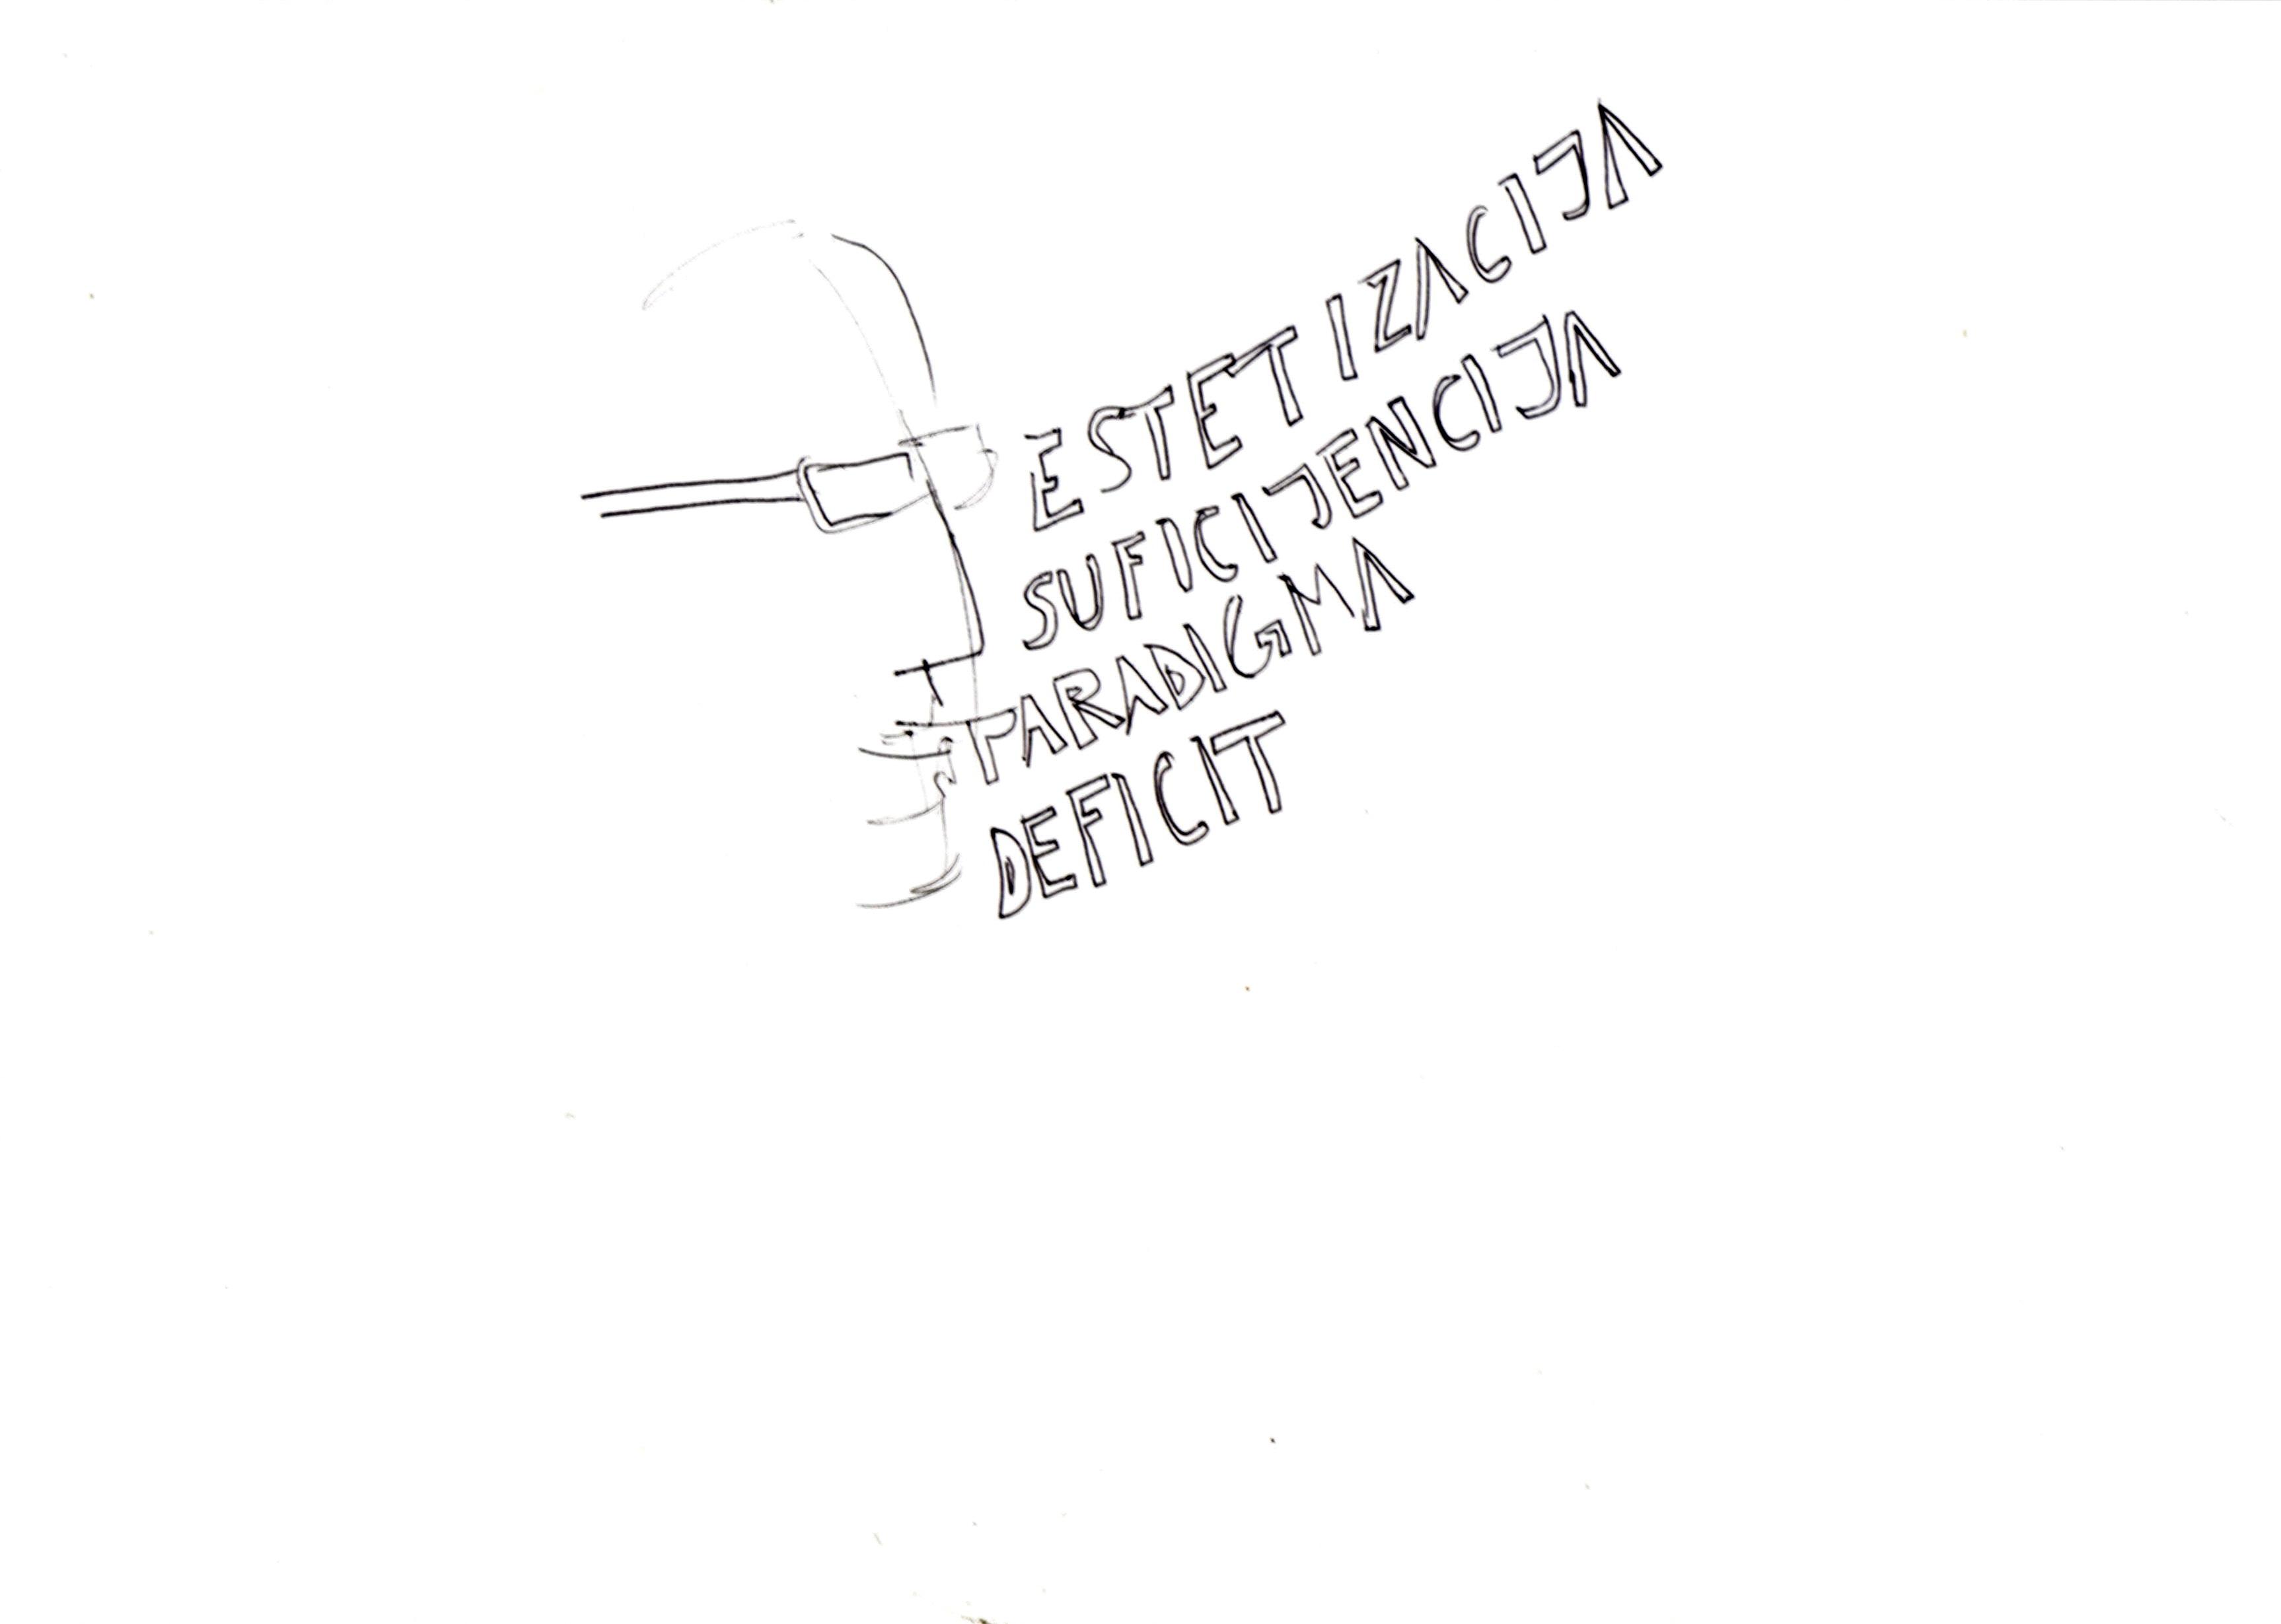 ESTETIZACIJA
SUFICIJENCIJA
PARADIGMA
DEFICIT